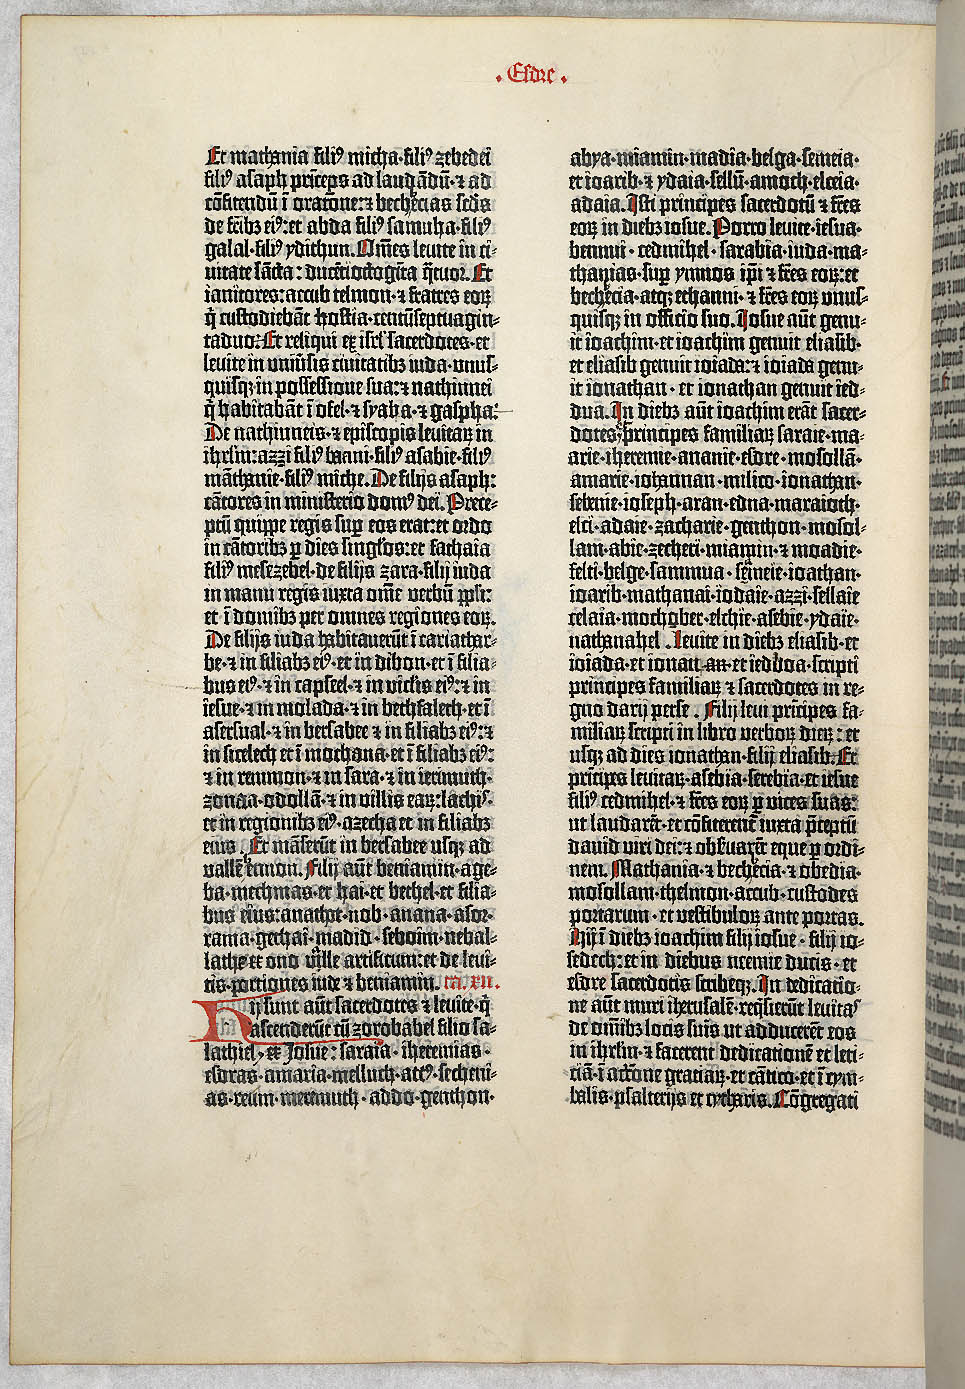 · Esdre ·
Et mathania filiꝰ micha·filiꝰ zebedei
filiꝰ asaph prīceps ad laudādū·⁊ ad
cōfitendū ī oratōne:⁊ bechecias scd̄s
de frībꝫ eiꝰ:et abda filiꝰ samuha·filiꝰ
galal·filiꝰ ydithun. Om̄es levite in ci-
uitate sācta: ducētioctogīta q̄tuor. Et
ianitores:accub telmon·⁊ fratres eoꝝ
q̄ custodiebāt hostia·centūseptuagin-
taduo:Et reliqui ex isrl̄ sacerdotes·et
levite in univ̄sis civitatibꝫ iuda·unus-
quisqꝫ in possessione sua:⁊ nathinnei
q̄ habitabāt ī ofel·⁊ syaha·⁊ gaspha:
De nathinneis·⁊ episcopis levitaꝝ in
ihrl̄m:azzi filiꝰ bani·filiꝰ asabie·filiꝰ
māthanie·filiꝰ miche. De filijs asaph:
cātores in ministerio domꝰ dei. Prece-
ptū quippe regis sup̄ eos erat:et ordo
in cātoribꝫ p̄ dies singl̄os:et fathaia
filiꝰ mesezebel·de filijs zara·filij iuda
in manu regis iuxta om̄e verbū pp̄li:
et ī domibꝫ per omnes regiones eoꝝ.
De filijs iuda habitaverūt ī cariathar-
be·⁊ in filiabꝫ eiꝰ·et in dibon·et ī filia-
bus eiꝰ·⁊ in capseel·⁊ in vicis eiꝰ:⁊ in
iesue·⁊ in molada·⁊ in bethfaleth·et ī
asersual·⁊ in bersabee ⁊ in filiabꝫ eiꝰ:⁊
in sicelech et ī mochona·et ī filiabꝫ eiꝰ:
⁊ in remmon·⁊ in sara·⁊ in ierimuth·
zonaa·odollā·⁊ in villis eaꝝ:lachiꝰ·
et in regionibꝫ eiꝰ·azecha et in filiabꝫ
eius. Et māserūt in bersabee usqꝫ ad
vallē ennon. Filij aūt beniamin a ge-
ba·mechmas·et hai·et bethel·et filia-
bus eius:anathot·nob·anana·asor·
rama·gethai·madid·seboim·nebal-
lath et ono valle artificum:et de levi-
tis·portiones iude ⁊ beniamin. ca. xii.
Hij sunt aūt sacerdotes ⁊ levite·q̄
ascenderūt cū zorobabel filio sa-
lathiel, et Iosue: saraia·iheremias·
esdras·amaria·melluch·attꝰ·secheni-
as·reum·meremuth·addo·genthon·
abya·miamin·madia·belga·semeia·
et ioarib·⁊ ydaia·sellū·amoch·elceia·
adaia. Isti principes sacerdotū ⁊ fr̄es
eoꝝ in diebꝫ iosue. Porro levite·iesua·
bennui·cedmihel·sarabia·iuda·ma-
thanias·sup̄ ymnos ip̄i ⁊ fr̄es eoꝝ:et
bechecia·atqꝫ et hanni·⁊ fr̄es eoꝝ unus-
quisqꝫ in officio suo. Iosue aūt genu-
it ioachim·et ioachim genuit eliasib·
et eliasib genuit ioiada:⁊ ioiada genu-
it ionathan·et ionathan genuit ied-
dua. In diebꝫ aūt ioachim erāt sacer-
dotes principes familiaꝝ saraie·ma-
arie·iheremie·ananie·esdre·mosollā·
amarie·iohannan·milico·ionathan·
sebenie·ioseph·aran·edna·maraioth·
elci·adaie·zacharie·genthon·mosol-
lam·abie·zecheri·miamin·⁊ moadie·
felti·belge·sammua·semeie·ioathan·
ioarib·mathanai·iodaie·azzi·sellaie
celaia·mochober·elchie·asebie·ydaie·
nathanahel. Levite in diebꝫ eliasib·et
ioiada·et ionan·et iedboa·scripti
principes familiaꝝ ⁊ sacerdotes in re-
gno darij perse. Filij levi prīcipes fa-
miliaꝝ scripti in libro verboꝝ dieꝝ: et
usqꝫ ad dies ionathan·filij eliasib. Et
prīcipes levitaꝝ·asebia·serebia·et iesue
filiꝰ cedmihel·⁊ fr̄es eoꝝ p̄ vices suas:
ut laudarēt·et cōfiterent̄ iuxta p̄ceptū
david viri dei:⁊ obs̄varēt eque p̄ ordi-
nem. Mathania·⁊ bechecia·⁊ obedia·
mosollam·thelmon·accub·custodes
portarum·et vestibuloꝝ ante portas.
Hij ī diebꝫ ioachim filij iosue·filij io-
sedech:et in diebus neemie ducis·et
esdre sacerdotis scribeqꝫ. In dedicatio-
ne aūt muri iherusalē·reqs̄ierūt levitas
de om̄ibꝫ locis suis ut adducerēt eos
in ihrl̄m·⁊ facerent dedicationē et leti-
ciā·ī actōne gratiaꝝ·et cātico·et ī cym-
balis·psalterijs et cytharis. Cōgregati